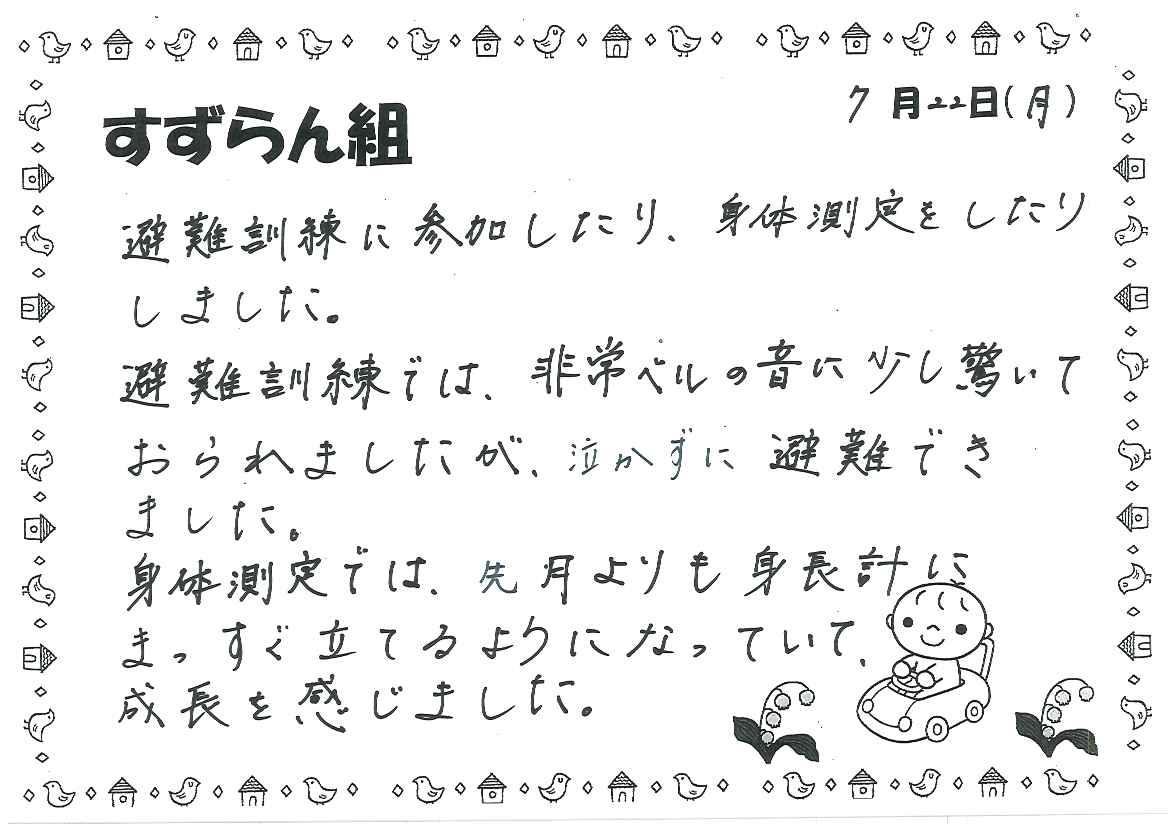 7月22日(月)
すずらん組
避難訓練に参加したり、身体測定をしたり
しました。
避難訓練では、非常ベルの音に少し驚いて
おられましたが、泣かずに避難でき
ました。
身体測定では、先月よりも身長計に
まっすぐ立てるようになっていて、
成長を感じました。